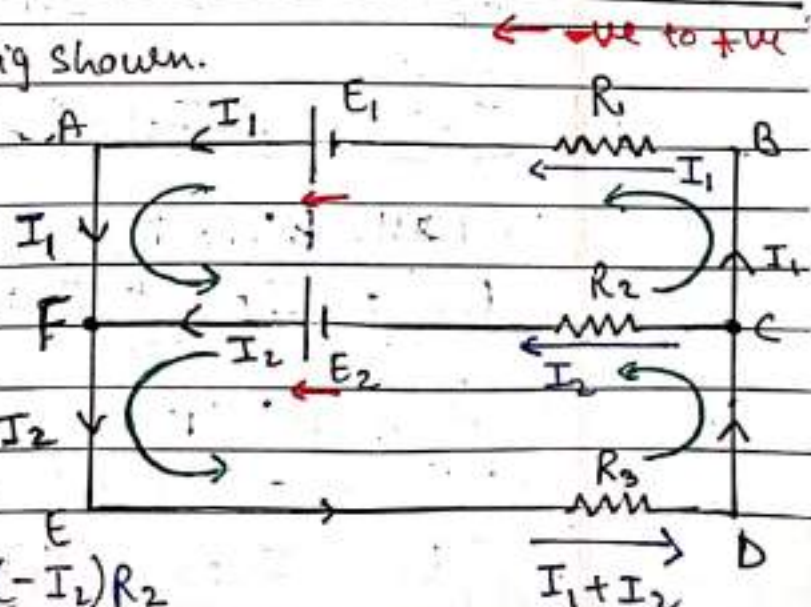 -ve to +ve
ig shown.
A I₁ E₁ R₁ B
I₁
I₁ I₁
R₂
F C
I₂ E₂ I₂
I₂
R₃
E D
(-I₂)R₂ I₁+I₂